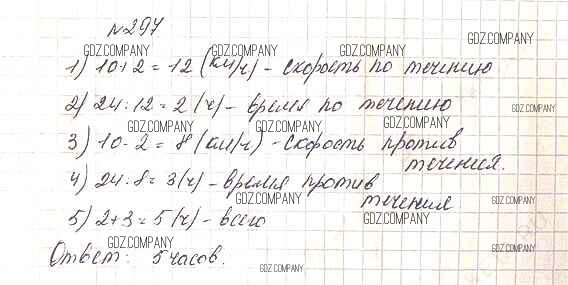 №297
GDZ.COMPANY GDZ.COMPANY GDZ.COMPANY GDZ.COMPANY
1) 10+2=12 (км/ч) - скорость по течению
2) 24:12=2 (ч) - время по течению
GDZ.COMPANY
GDZ.COMPANY GDZ.COMPANY GDZ.COMPANY
3) 10-2=8 (км/ч) - скорость против
течения.
4) 24:8=3 (ч) - время против
течения
GDZ.COMPANY GDZ.COMPANY GDZ.COMPANY
5) 2+3=5 (ч) - всего
GDZ.COMPANY
GDZ.COMPANY GDZ.COMPANY
Ответ: 5 часов.
GDZ.COMPANY